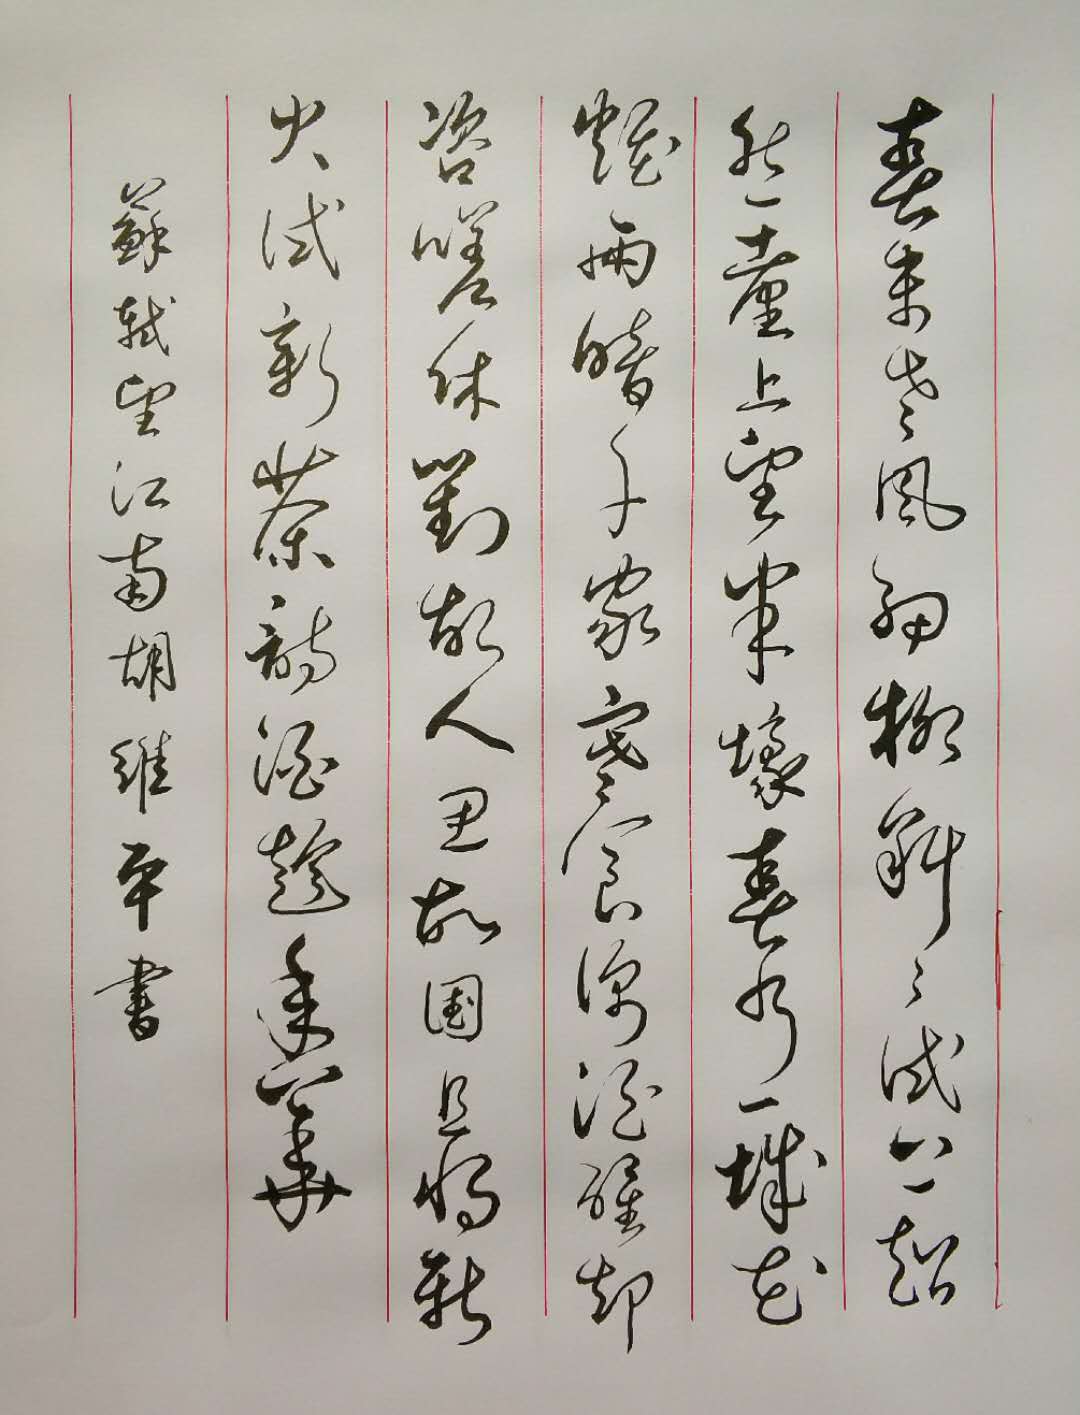 春未老風細柳斜々試上超
然臺上望半壕春水一城花
煙雨暗千家寒食後酒醒却
咨嗟休對故人思故国且將新
火試新茶詩酒趁年華
蘇軾望江南胡維平書